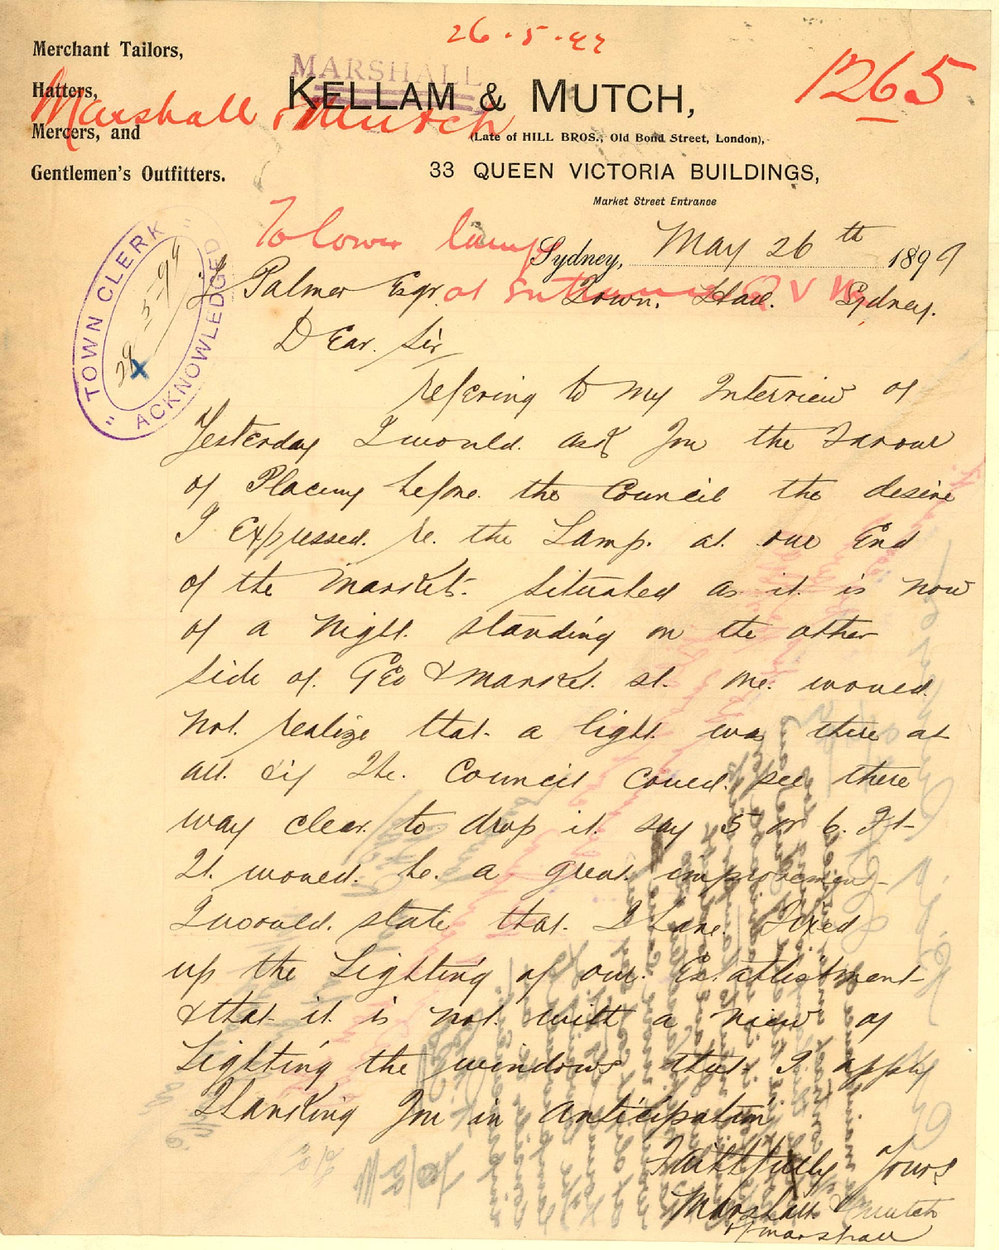 26.5.99
1265
Merchant Tailors,
Hatters,
Mercers, and
Gentlemen's Outfitters.
MARSHALL
KELLAM & MUTCH,
Marshall & Mutch
(Late of HILL BROS., Old Bond Street, London),
33 QUEEN VICTORIA BUILDINGS,
Market Street Entrance
To lower lamp
at Entrance Q V M
Sydney, May 26th 1899
TOWN CLERK
29-5-99
X
"ACKNOWLEDGED"
Palmer Esqr Town. Hall. Sydney.
Dear. Sir
Refering to my Interview of
Yesterday I would. ask You the Favour
of Placing before. the Council the desire
I Expressed. re. the Lamp. at. our End
of the Market. Situated as it is now
of a Night. standing on the other
side of. Geo & Market. st. one. would.
not. realize that. a light was there at
all. & if The. Council could. see there
way clear. to drop it. say 5 or 6. Ft.
It. would. be. a great improvement
I would. state that. I have. Fixed
up the Lighting of our. Establishment
& that it is not with a view of
Lighting the windows that I apply
Thanking You in Anticipation
Faithfully Yours
Marshall & Mutch
Marshall